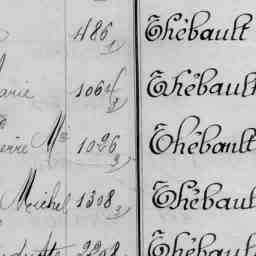 486 1 Thébault
arie 1064 3 Thébault
erre Mie 1026 3 Thébault
Michel 1308 3 Thébault
2208 Thébault